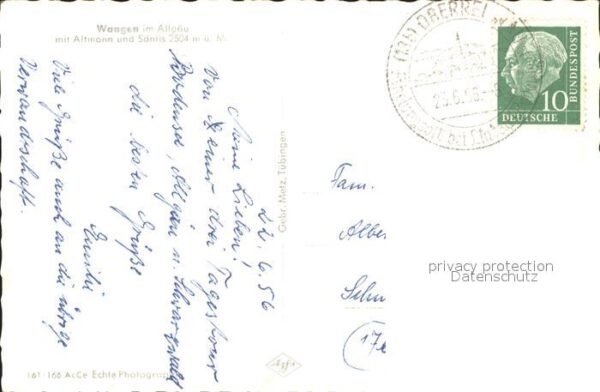 Wangen im Allgäu
mit Altmann und Säntis 2504 m ü. M.
22.6.56
Meine Lieben!
Von einer drei Tagestour
Bodensee, Allgäu u. Schwarzwald
die besten Grüße
Emilie
Viele Grüße auch an die übrige
Verwandschaft.
Gebr. Metz, Tübingen
161 166 AcCe Echte Photograph
Agfa
OBERREI
DEUTSCHE
BUNDESPOST
10
Fam.
Albe
Schu
(17
privacy protection
Datenschutz